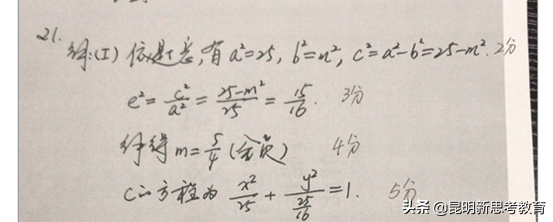 21.
解:(I) 依题意,有 a²=25, b²=m², c²=a²-b²=25-m². 2分
e²=c²/a²=(25-m²)/25=15/16. 3分
解得 m=5/4 (舍负) 4分
C的方程为 x²/25 + y²/(25/16) =1. 5分
头条 @昆明新思考教育